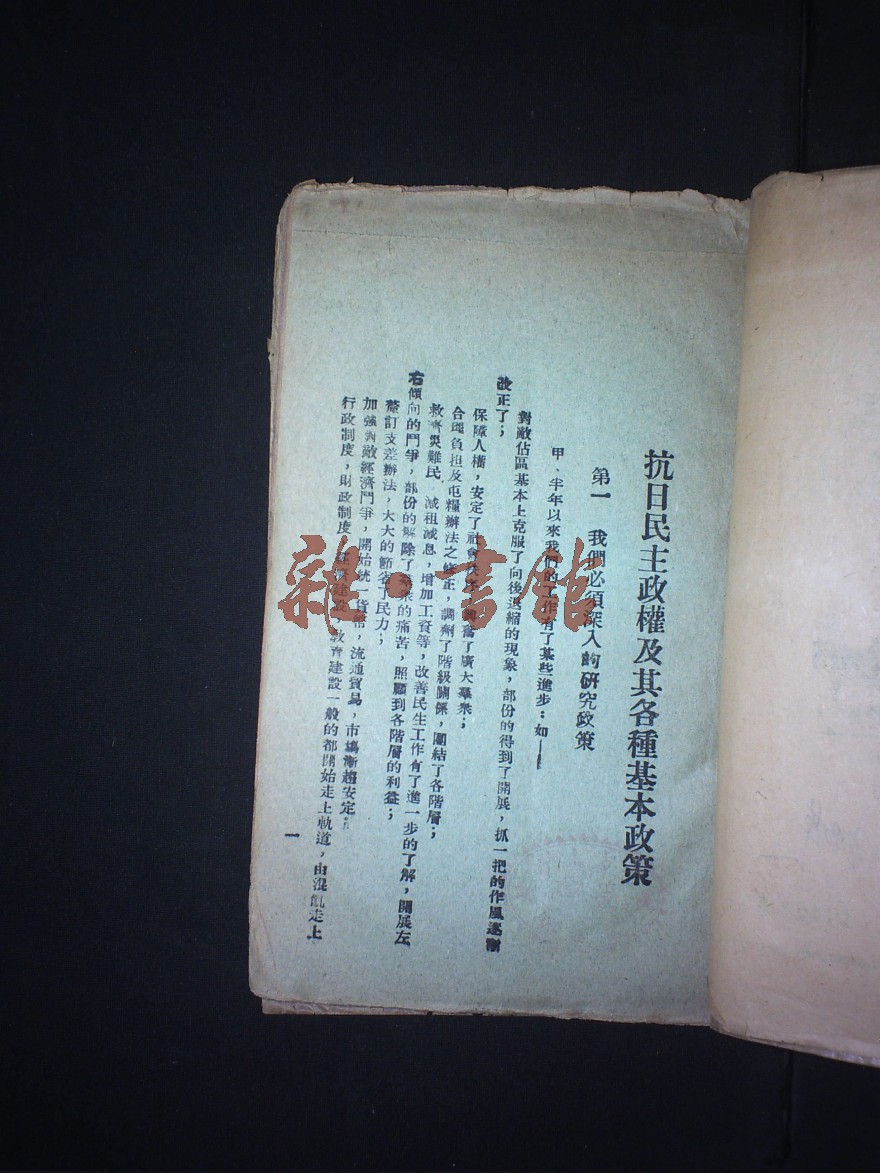 抗日民主政權及其各種基本政策
第一　我們必須深入的研究政策
甲、半年以來我們的工作有了某些進步：如——
對敵佔區基本上克服了向後退縮的現象，部份的得到了開展，抓一把的作風逐漸
改正了；
保障人權，安定了社會秩序，興奮了廣大羣衆；
合理負担及屯糧辦法之修正，調劑了階級關係，團結了各階層；
救濟災難民　減租減息，增加工資等，改善民生工作有了進一步的了解，開展左
右傾向的鬥爭，部份的解除了羣衆的痛苦，照顧到各階層的利益；
整訂支差辦法，大大的節省了民力；
加強對敵經濟鬥爭，開始統一貨幣，流通貿易，市場漸趨安定；
行政制度，財政制度，經濟建設，教育建設一般的都開始走上軌道，由混亂走上
一
雜·書館